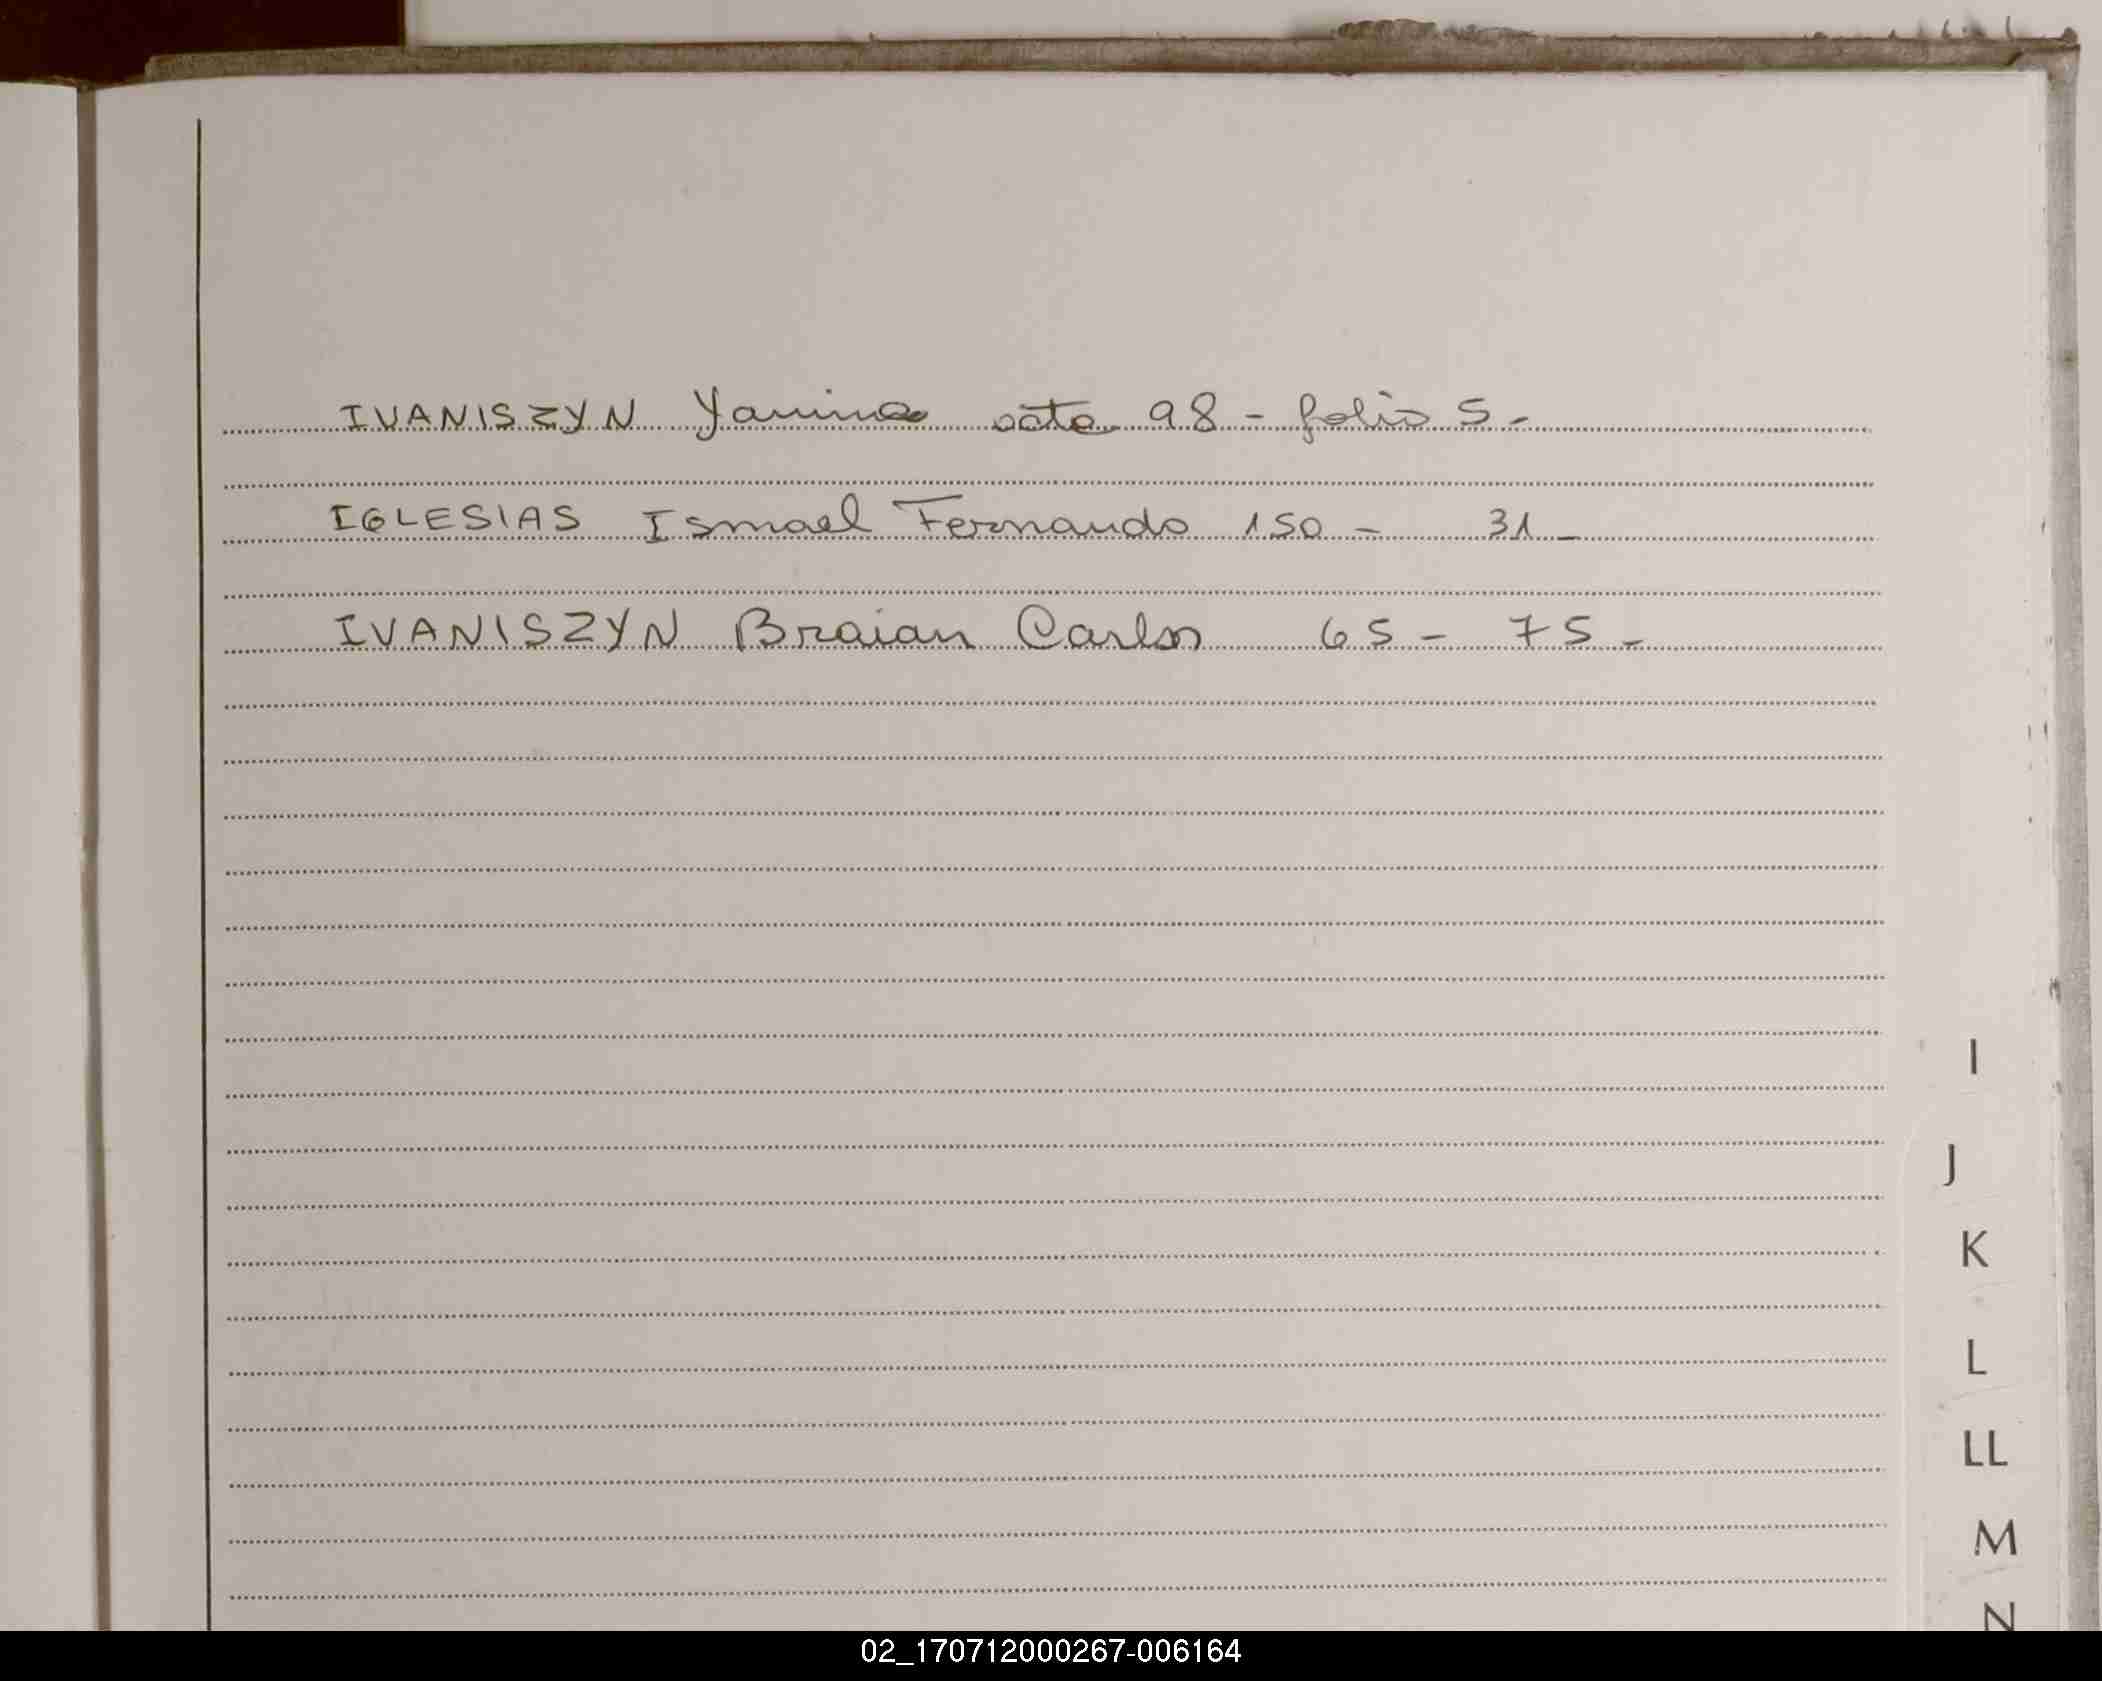 IVANISZYN Yanina acta 98 - folio 5 -
IGLESIAS Ismael Fernando 150 - 31 -
IVANISZYN Braian Carlos 65 - 75 -
I
J
K
L
LL
M
N
02_170712000267-006164